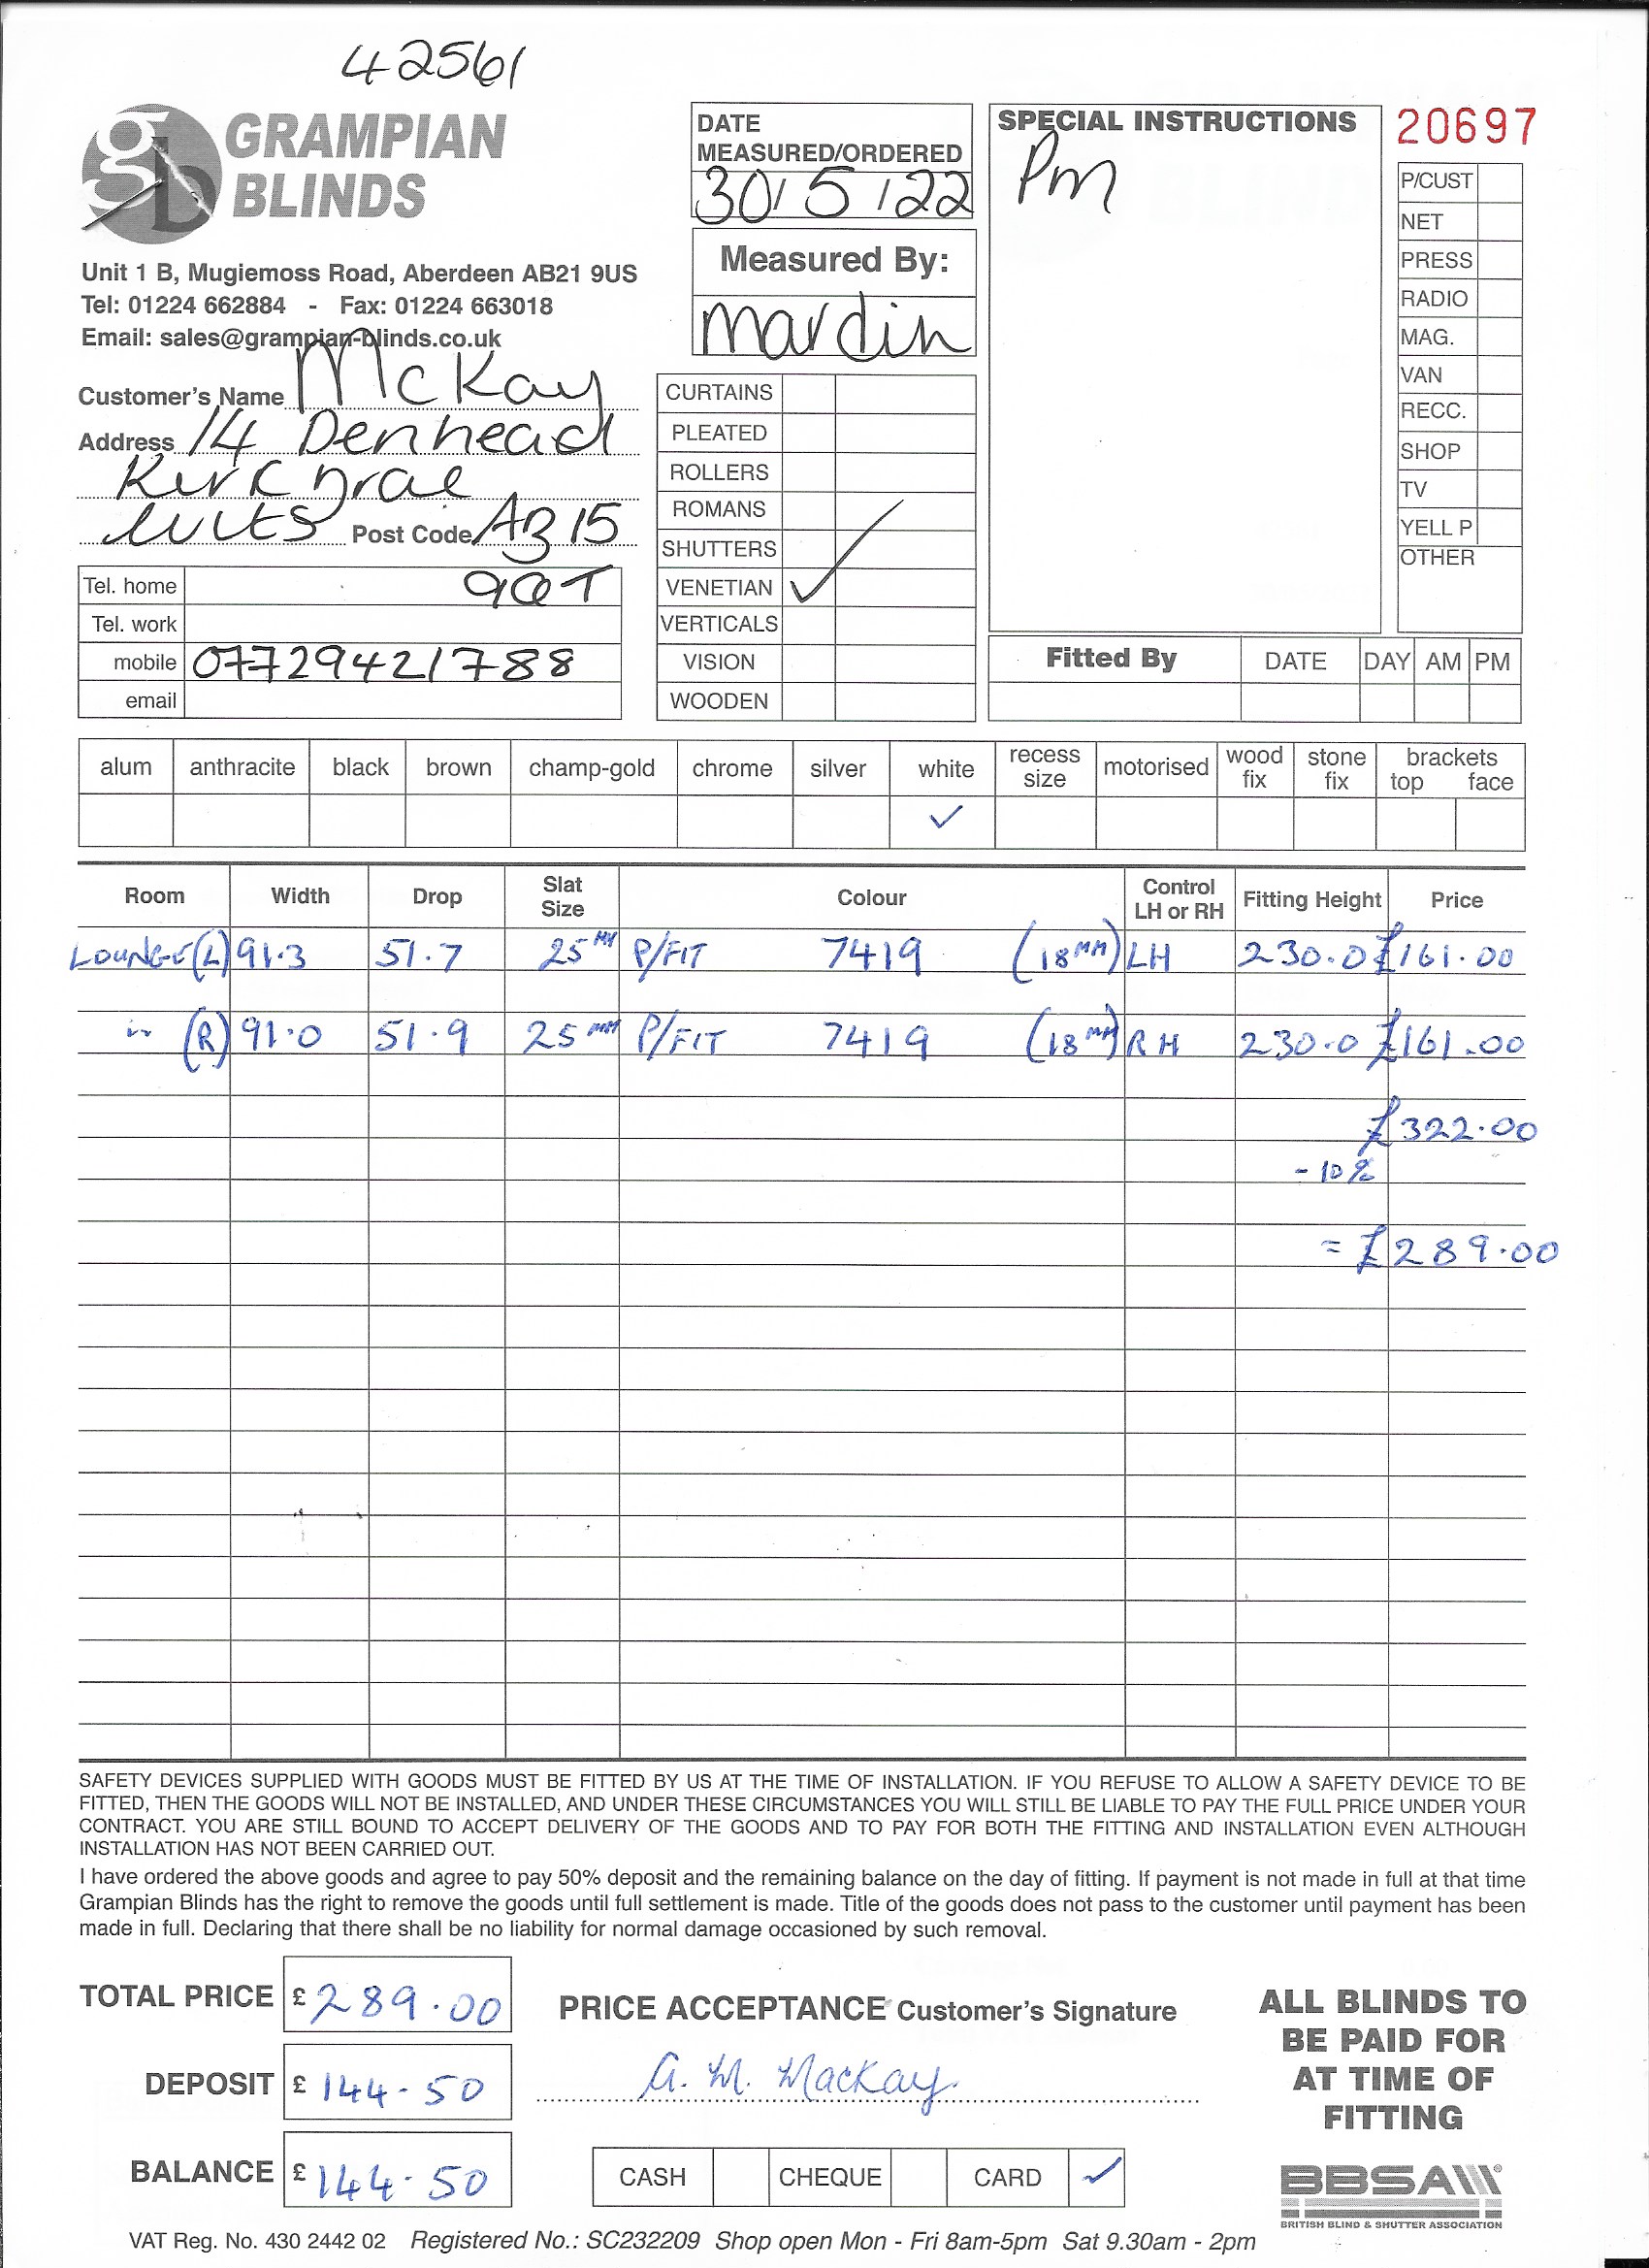 42561
GRAMPIAN
BLINDS
Unit 1 B, Mugiemoss Road, Aberdeen AB21 9US
Tel: 01224 662884 - Fax: 01224 663018
Email: sales@grampian-blinds.co.uk
Customer's Name McKay
Address 14 Denhead
Post Code AB15
9QT
Tel. home
Tel. work
mobile 07729421788
email
DATE
MEASURED/ORDERED
30/5/22
Measured By:
CURTAINS
PLEATED
ROLLERS
ROMANS
SHUTTERS
VENETIAN ✓
VERTICALS
VISION
WOODEN
SPECIAL INSTRUCTIONS
Pm
20697
P/CUST
NET
PRESS
RADIO
MAG.
VAN
RECC.
SHOP
TV
YELL P
OTHER
Fitted By DATE DAY AM PM
alum anthracite black brown champ-gold chrome silver white recess size motorised wood fix stone fix brackets top face
✓
Room Width Drop Slat Size Colour Control LH or RH Fitting Height Price
LOUNGE (L) 91.3 51.7 25MM P/FIT 7419 (18MM) LH 230.0 £161.00
" (R) 91.0 51.9 25MM P/FIT 7419 (18MM) RH 230.0 £161.00
£322.00
- 10%
= £289.00
SAFETY DEVICES SUPPLIED WITH GOODS MUST BE FITTED BY US AT THE TIME OF INSTALLATION. IF YOU REFUSE TO ALLOW A SAFETY DEVICE TO BE
FITTED, THEN THE GOODS WILL NOT BE INSTALLED, AND UNDER THESE CIRCUMSTANCES YOU WILL STILL BE LIABLE TO PAY THE FULL PRICE UNDER YOUR
CONTRACT. YOU ARE STILL BOUND TO ACCEPT DELIVERY OF THE GOODS AND TO PAY FOR BOTH THE FITTING AND INSTALLATION EVEN ALTHOUGH
INSTALLATION HAS NOT BEEN CARRIED OUT.
I have ordered the above goods and agree to pay 50% deposit and the remaining balance on the day of fitting. If payment is not made in full at that time
Grampian Blinds has the right to remove the goods until full settlement is made. Title of the goods does not pass to the customer until payment has been
made in full. Declaring that there shall be no liability for normal damage occasioned by such removal.
TOTAL PRICE £ 289.00
DEPOSIT £ 144-50
BALANCE £ 144-50
PRICE ACCEPTANCE Customer's Signature
A. M. Mackay
CASH CHEQUE CARD ✓
ALL BLINDS TO
BE PAID FOR
AT TIME OF
FITTING
BBSA
BRITISH BLIND & SHUTTER ASSOCIATION
VAT Reg. No. 430 2442 02 Registered No.: SC232209 Shop open Mon - Fri 8am-5pm Sat 9.30am - 2pm